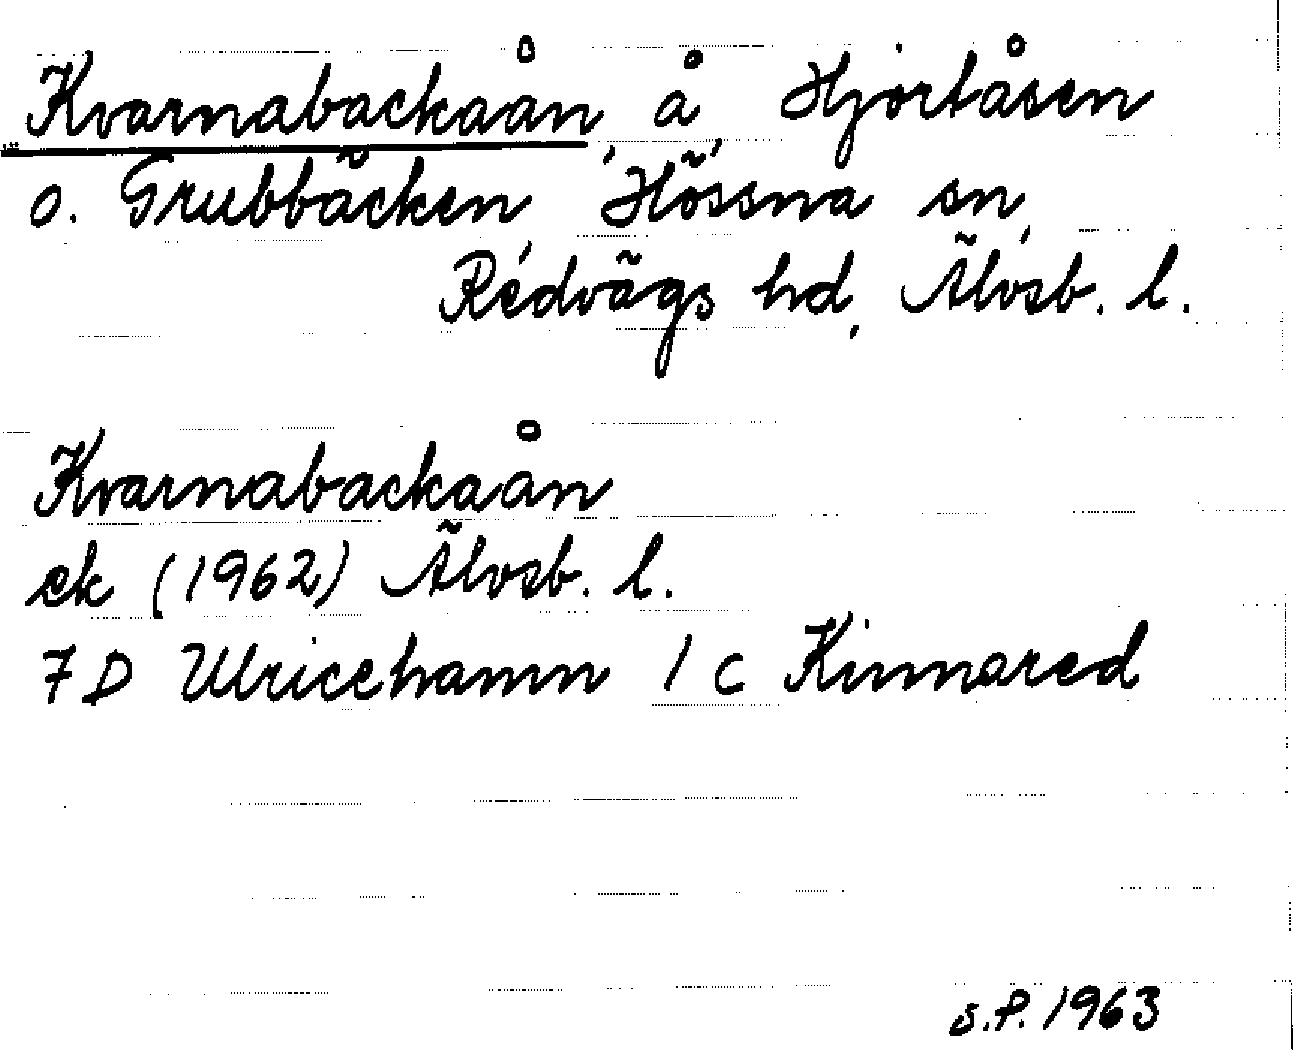 Kvarnabackaån, å, Hjortåsen
o. Grubbäcken, Hössna sn,
Redvägs hd, Älvsb. l.
Kvarnabackaån
ek (1962) Älvsb. l.
7 D Ulricehamn 1 c Kinnared
S.P. 1963